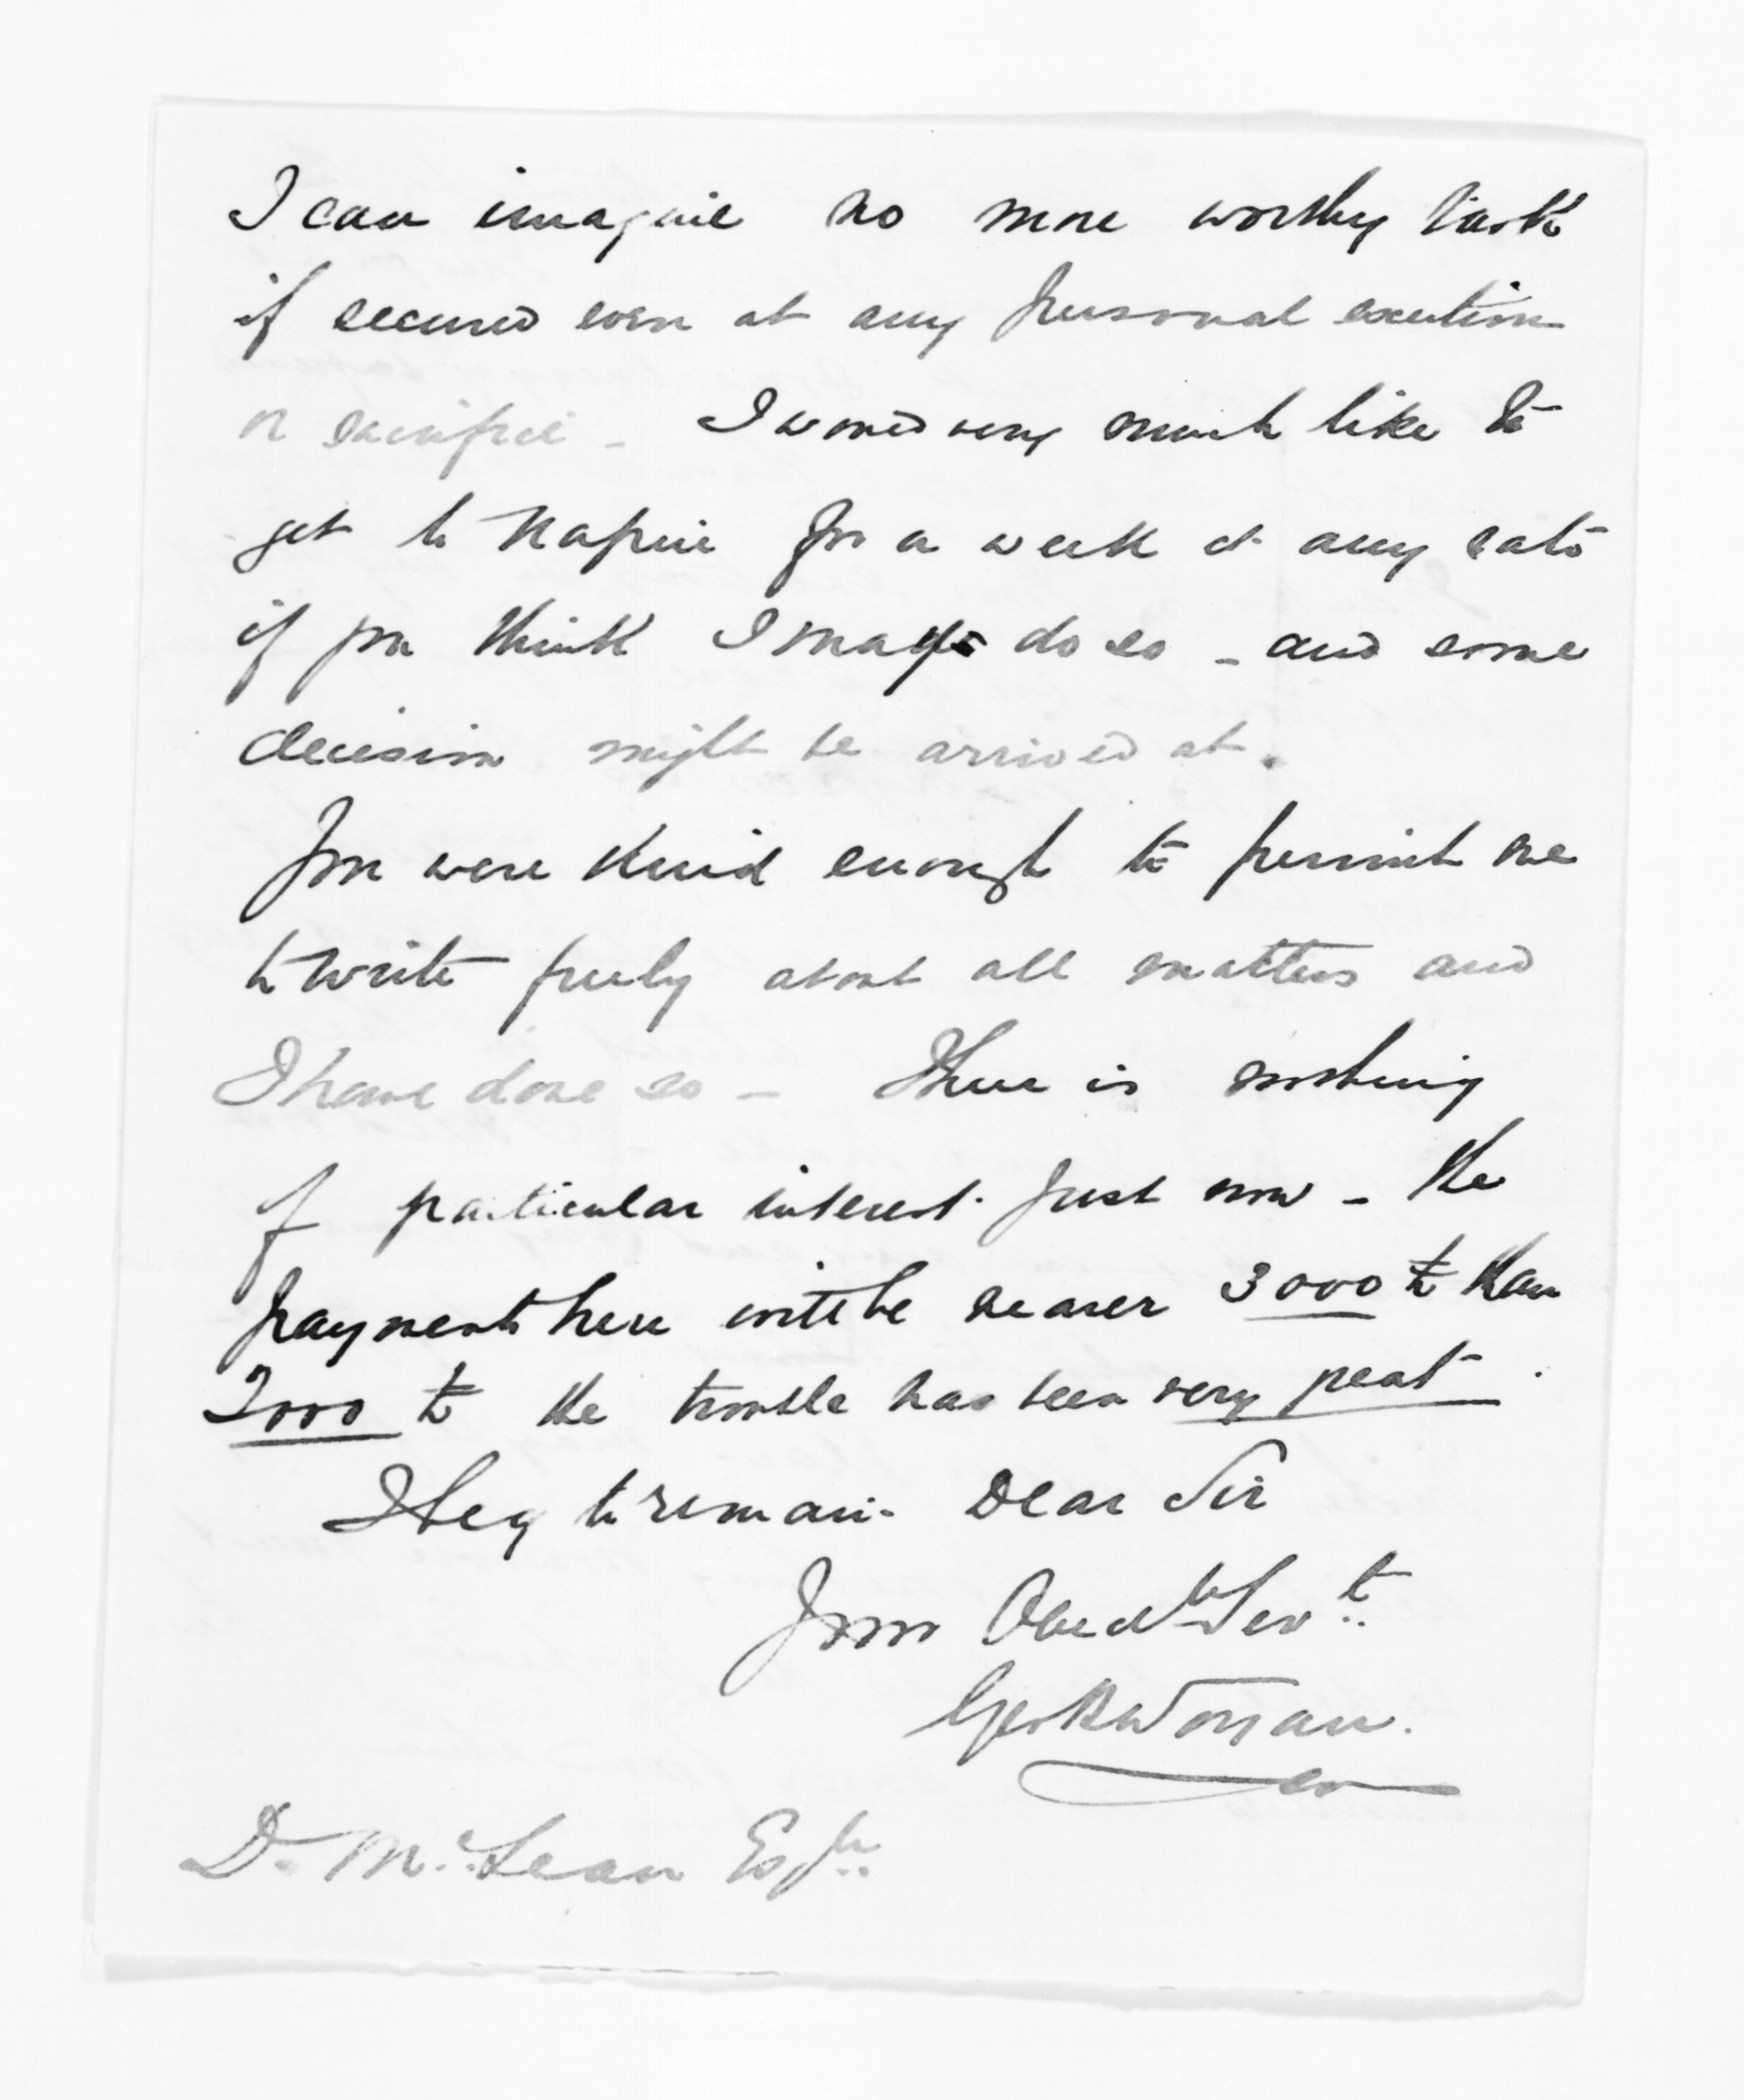 I can imagine no more worthy task
if secured even at any personal exertion
or sacrifice - I would very much like to
get to Napier for a week at any rate
if you think I may do so - and some
decision might be arrived at.
You were kind enough to permit me
to write freely about all matters and
I have done so - There is nothing
of particular interest just now - the
payments here will be nearer 3000 £ than
2000 £ the trouble has been very great.
I beg to remain Dear Sir
Your Obedt Servt
Geo B Worgan.
D. McLean Esqr